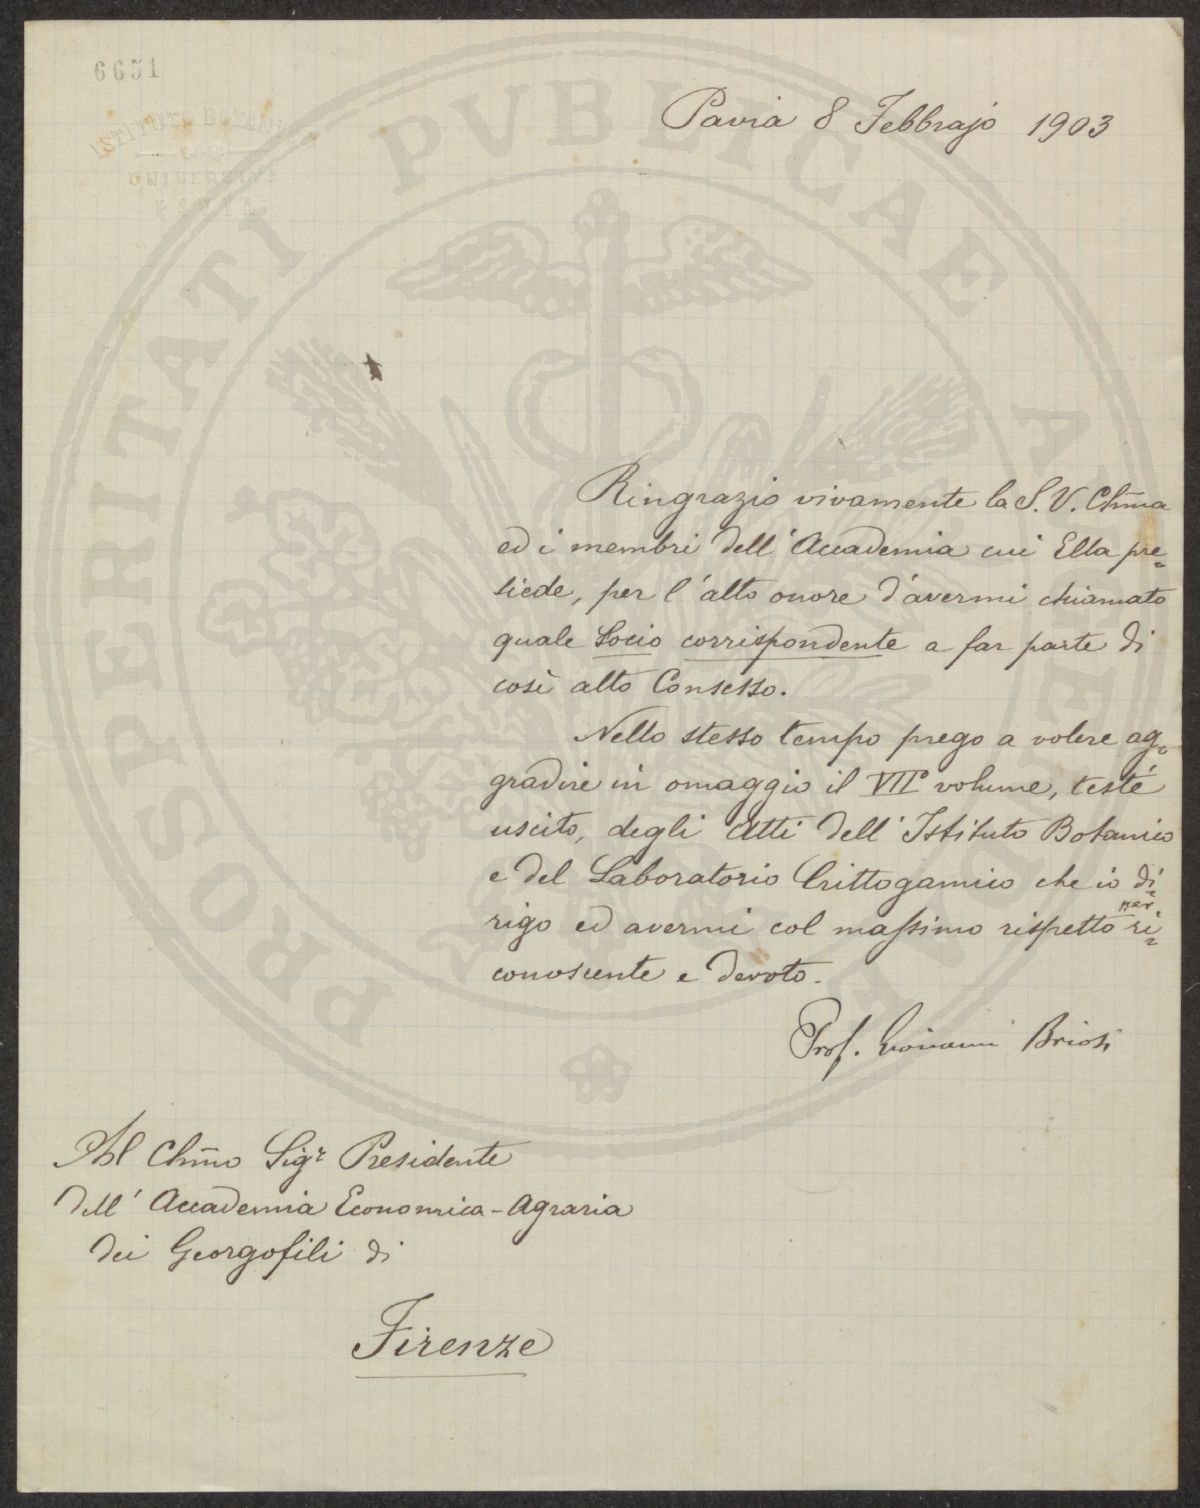 6651
ISTITUTO BOTANICO
UNIVERSITÀ
PAVIA
PROSPERITATI PVBLICAE AVGENDAE
Pavia 8 Febbrajo 1903
Ringrazio vivamente la S. V. Chm̄a
ed i membri dell' Accademia cui Ella pre=
siede, per l'alto onore d'avermi chiamato
quale Socio corrispondente a far parte di
così alto Consesso.
Nello stesso tempo prego a volere ag=
gradire in omaggio il VII° volume, testé
uscito, degli Atti dell' Istituto Botanico
e del Laboratorio Crittogamico che io di=
rigo ed avermi col massimo rispetto per ri=
conoscente e devoto.
Prof. Giovanni Briosi
Al Chm̄o Sigr Presidente
dell' Accademia Economica-Agraria
dei Georgofili di
Firenze